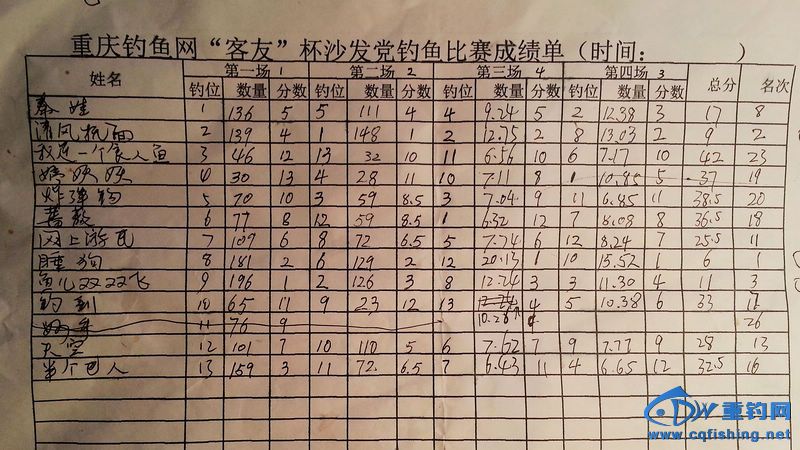 重庆钓鱼网“客友”杯沙发党钓鱼比赛成绩单（时间： ）
姓名 第一场 1 第二场 2 第三场 4 第四场 3 总分 名次
钓位 数量 分数 钓位 数量 分数 钓位 数量 分数 钓位 数量 分数
1 136 5 5 111 4 4 9.24 5 2 12.38 3 17 8
2 139 4 1 148 1 2 12.75 2 8 13.03 2 9 2
我是一个食人鱼 3 46 12 13 32 10 11 6.56 10 6 7.17 10 42 23
4 30 13 4 28 11 10 7.11 8 1 10.85 5 37 19
炸弹钩 5 70 10 3 59 8.5 3 7.04 9 11 6.85 11 38.5 20
蔷薇 6 77 8 12 59 8.5 1 6.32 12 7 8.08 8 36.5 18
网上游民 7 107 6 8 72 6.5 5 7.74 6 12 8.24 7 25.5 11
睡狗 8 181 2 6 129 2 12 20.13 1 10 15.52 1 6 1
鱼儿双双飞 9 196 1 2 126 3 8 12.24 3 3 11.30 4 11 3
钓到 10 65 11 9 23 12 13 4 5 10.38 6 33 17
11 76 9 10.28 26
天空 12 101 7 10 110 5 6 7.72 7 9 7.77 9 28 13
单个巴人 13 159 3 11 72. 6.5 7 6.43 11 4 6.65 12 32.5 16
重钓网
www.cqfishing.net